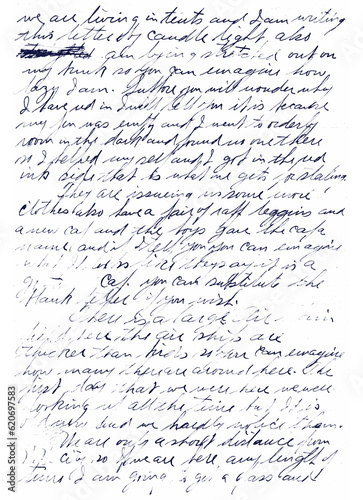 we are living in tents and I am writing
this letter by candle light, also
am lying stretched out on
my bunk so you can emagine how
lazy I am. you will wonder why
I have red in I will tell you it is because
my pen was empty and I went to orderly
room in the dark and found no one there
so I helped my self and I got in the red
ink side that is what we get for stealing.
They are issueing us some more
clothes also have a pair of raft leggins and
a new cap and the boys gave the cap a
name and I tell you you can emagine
what it is like they say it is a
Cap. you can substitute the
blank letter if you wish.
There is a large
field here the air ships are
thicker than birds so you can emagine
how many there are around here. The
first day that we were here we were
looking at all the time but it is
and we hardly notice them.
We are only a short distance from
City so if we are here any length of
time I am going to get a pass and